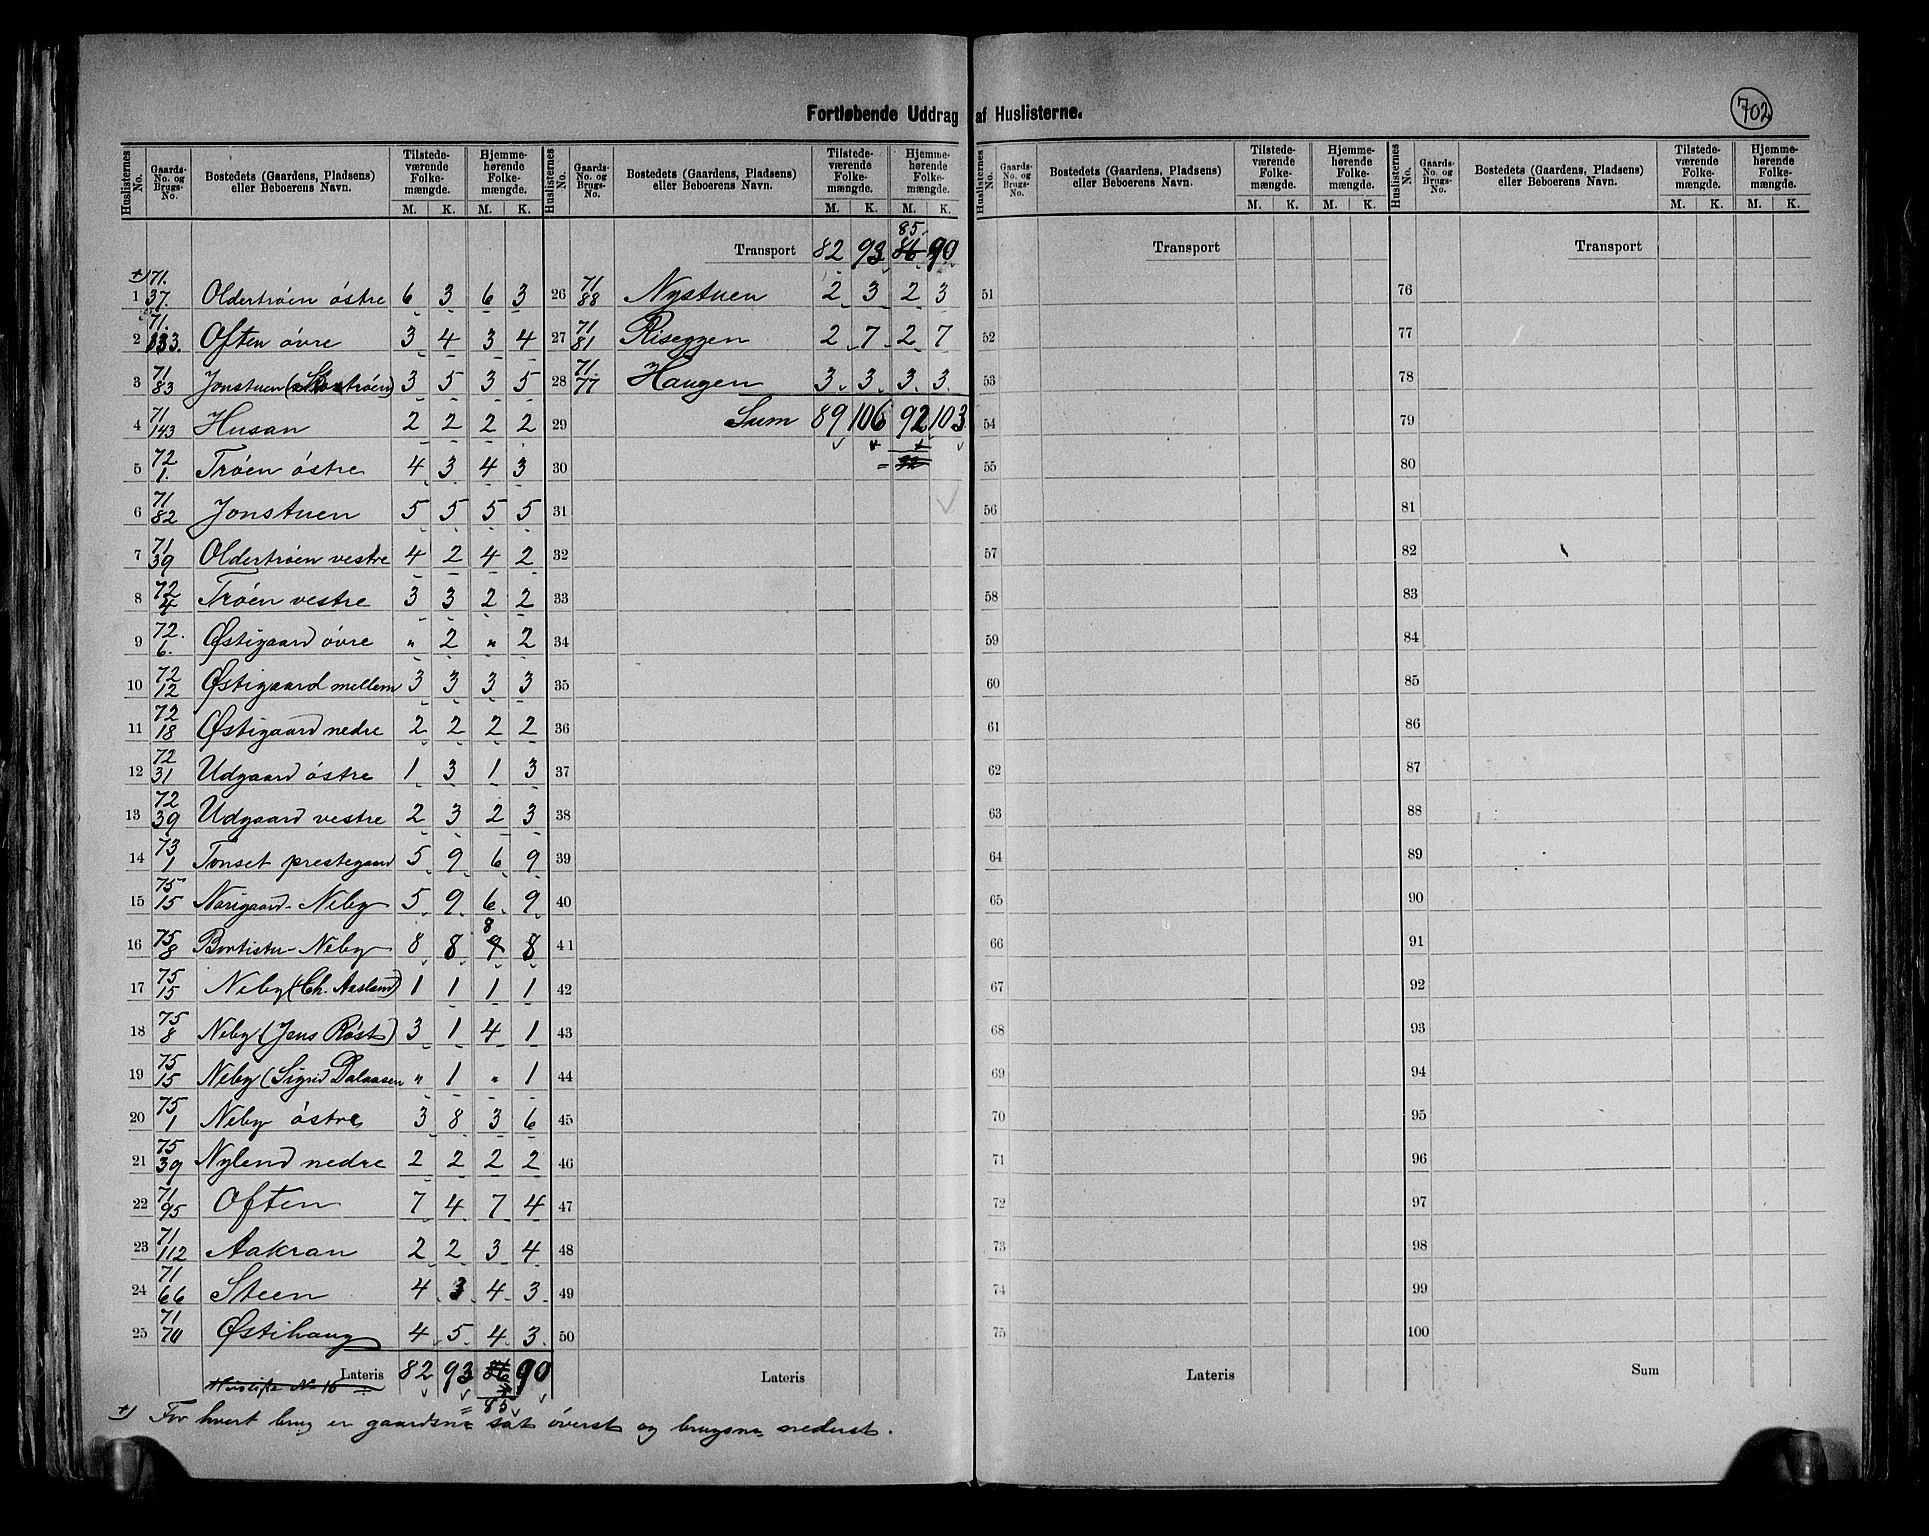 Fortløbende Uddrag af Huslisterne.
702
Huslisternes No. | Gaards- No. og Brugs- No. | Bostedets (Gaardens, Pladsens) eller Beboerens Navn. | Tilstede- værende Folke- mængde. M. K. | Hjemme- hørende Folke- mængde. M. K.
+) 1 71. 37. Oldertrøen østre 6 3 6 3
2 71. 133. Often øvre 3 4 3 4
3 71 83 Jonstuen 3 5 3 5
4 71 143 Husan 2 2 2 2
5 72 1. Trøen østre 4 3 4 3
6 71 82 Jonstuen 5 5 5 5
7 71 39 Oldertrøen vestre 4 2 4 2
8 72 4 Trøen vestre 3 3 2 2
9 72. 6. Østigaard øvre " 2 " 2
10 72 12 Østigaard mellem 3 3 3 3
11 72 18 Østigaard nedre 2 2 2 2
12 72 31 Udgaard østre 1 3 1 3
13 72 39 Udgaard vestre 2 3 2 3
14 73 1 Tonset prestegaard 5 9 6 9
15 75 15 Norigaard-Neby 5 9 6 9
16 75 8 Bortistu-Neby 8 8 8 8
17 75 15 Neby (Ch. Aasland) 1 1 1 1
18 75 8 Neby (Jens Røst) 3 1 4 1
19 75 15 Neby (Sigrid Dalaasen " 1 " 1
20 75 1 Neby østre 3 8 3 6
21 75 39 Nylend nedre 2 2 2 2
22 71 95 Often 7 4 7 4
23 71 112 Aakran 2 2 3 4
24 71 66 Steen 4 3 4 3
25 71 70 Østihaug 4 5 4 3
Lateris 82 93 86 90
Husliste No 16
85
+) For hvert brug er gaardsno sat øverst og brugsno nederst.
Huslisternes No. | Gaards- No. og Brugs- No. | Bostedets (Gaardens, Pladsens) eller Beboerens Navn. | Tilstede- værende Folke- mængde. M. K. | Hjemme- hørende Folke- mængde. M. K.
85.
Transport 82 93 86 90
26 71 88 Nystuen 2 3 2 3
27 71 81 Riseggen 2 7 2 7
28 71 77 Haugen 3 3 3 3
29 Sum 89 106 92 103
30
31
32
33
34
35
36
37
38
39
40
41
42
43
44
45
46
47
48
49
50
Lateris
Huslisternes No. | Gaards- No. og Brugs- No. | Bostedets (Gaardens, Pladsens) eller Beboerens Navn. | Tilstede- værende Folke- mængde. M. K. | Hjemme- hørende Folke- mængde. M. K.
Transport
51
52
53
54
55
56
57
58
59
60
61
62
63
64
65
66
67
68
69
70
71
72
73
74
75
Lateris
Huslisternes No. | Gaards- No. og Brugs- No. | Bostedets (Gaardens, Pladsens) eller Beboerens Navn. | Tilstede- værende Folke- mængde. M. K. | Hjemme- hørende Folke- mængde. M. K.
Transport
76
77
78
79
80
81
82
83
84
85
86
87
88
89
90
91
92
93
94
95
96
97
98
99
100
Sum